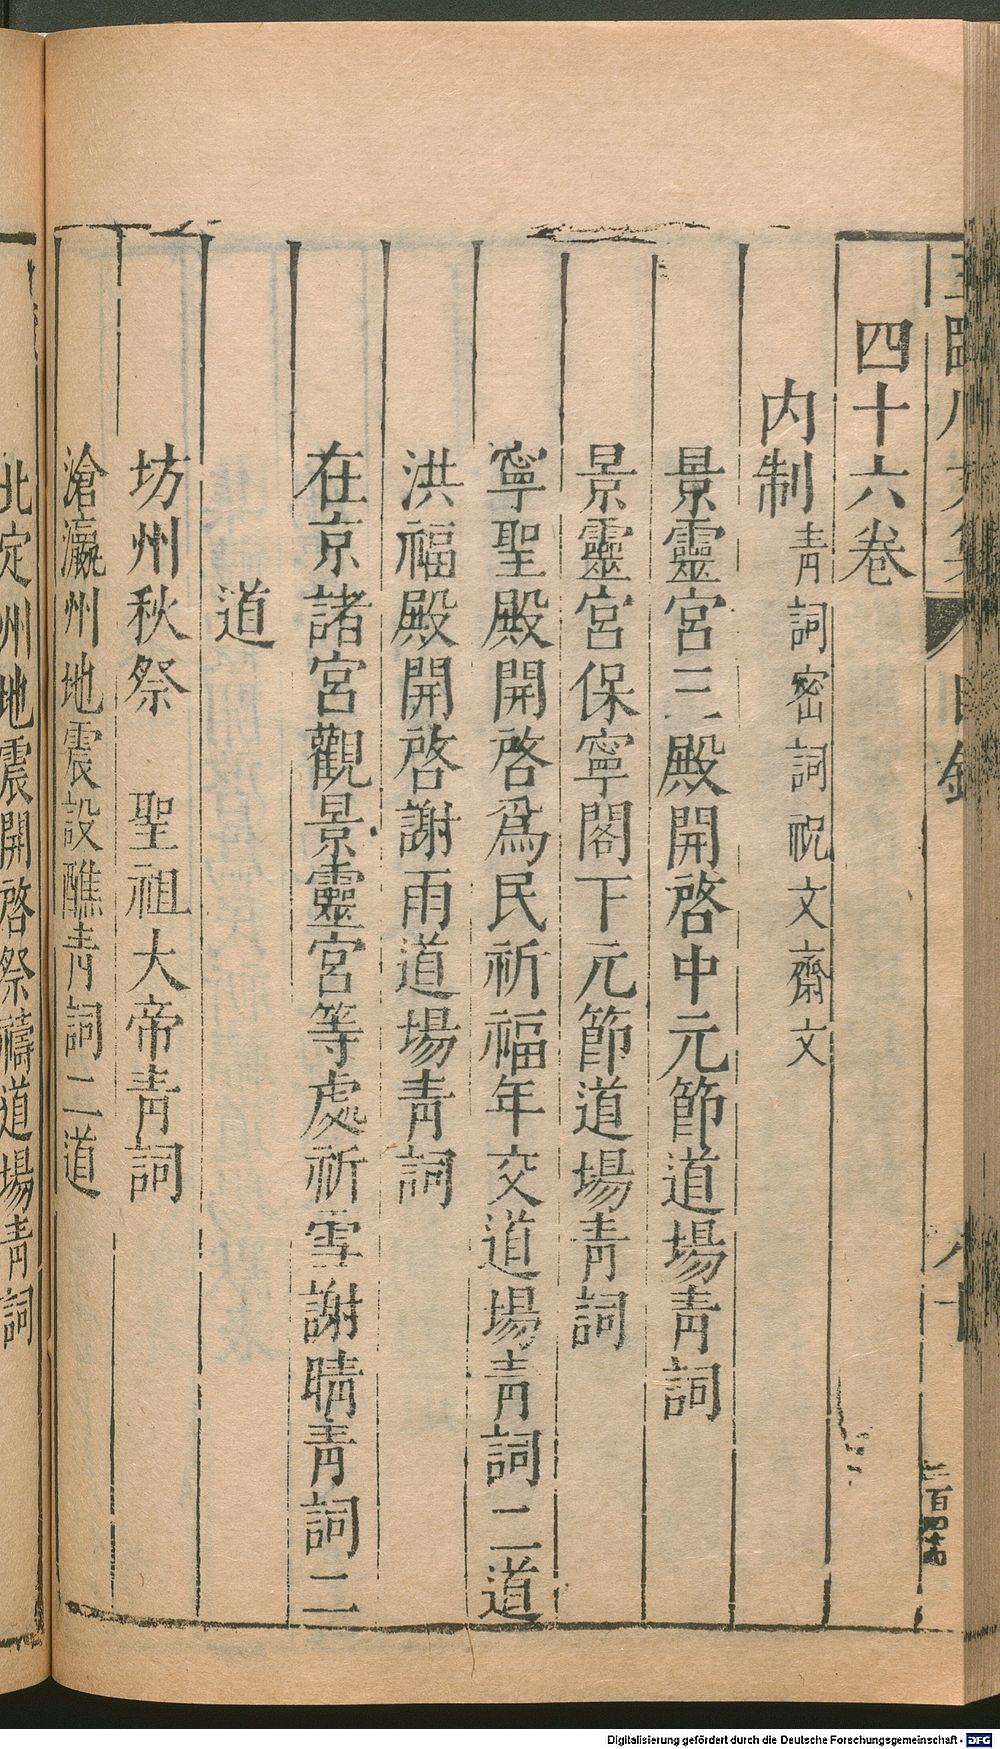 四十六卷
内制青詞密詞祝文齋文
景靈宮三殿開啓中元節道場青詞
景靈宮保寧閣下元節道場青詞
寧聖殿開啓爲民祈福年交道場青詞二道
洪福殿開啓謝雨道場青詞
在京諸宮觀景靈宮等處祈雪謝晴青詞二
道
坊州秋祭 聖祖大帝青詞
滄瀛州地震設醮青詞二道
北定州地震開啓祭禱道場青詞
Digitalisierung gefördert durch die Deutsche Forschungsgemeinschaft - DFG